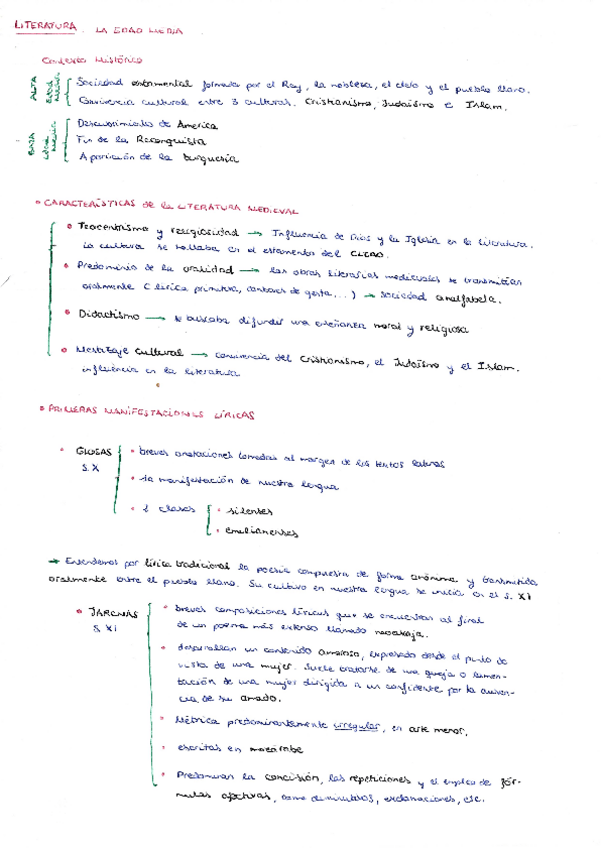 LITERATURA. LA EDAD MEDIA
Contexto Histórico
ALTA EDAD MEDIA
Sociedad estamental formada por el Rey, la nobleza, el clero y el pueblo llano.
Convivencia cultural entre 3 culturas. Cristianismo, Judaísmo e Islam.
BAJA EDAD MEDIA
Descubrimiento de America
Fin de la Reconquista
Aparición de la burguesía
• CARACTERÍSTICAS DE LA LITERATURA MEDIEVAL
• Teocentrismo y religiosidad → Influencia de Dios y la Iglesia en la literatura.
La cultura se hallaba en el estamento del CLERO.
• Predominio de la oralidad → las obras literarias medievales se transmitían
oralmente (lírica primitiva, cantares de gesta...) → sociedad analfabeta.
• Didactismo → se buscaba difundir una enseñanza moral y religiosa
• Mestizaje cultural → convivencia del Cristianismo, el Judaísmo y el Islam.
influencia en la literatura
• PRIMERAS MANIFESTACIONES LÍRICAS
• GLOSAS
S. X
• breves anotaciones tomadas al margen de los textos latinos
• 1a manifestación de nuestra lengua
• 2 clases
• silenses
• emilianenses
→ Entendemos por lírica tradicional la poesía compuesta de forma anónima y transmitida
oralmente entre el pueblo llano. Su cultivo en nuestra lengua se inicia en el s. XI
• JARCHAS
S. XI
• breves composiciones líricas que se encuentran al final
de un poema más extenso llamado moaxaja.
• desarrollan un contenido amoroso, expresado desde el punto de
vista de una mujer. Suele tratarse de una queja o lamen-
tación de una mujer dirigida a un confidente por la ausen-
cia de su amado.
• Métrica predominantemente irregular, en arte menor.
• escritas en mozárabe
• Predominan la concisión, las repeticiones y el empleo de fór-
mulas afectivas, como diminutivos, exclamaciones, etc.